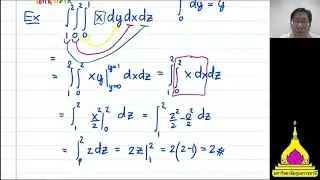 Ex ∫₁²∫₀²∫₀¹ x dy dx dz ∫₀ dy = y
= ∫₁²∫₀² xy |_{y=0}^{y=1} dx dz = ∫₁²∫₀² x dx dz
= ∫₁² x²/2 |₀² dz = ∫₁² 2²/2 - 0²/2 dz
= ∫₁² 2 dz = 2z |₁² = 2(2-1) = 2 #
มหาวิทยาลัยอุบลราชธานี